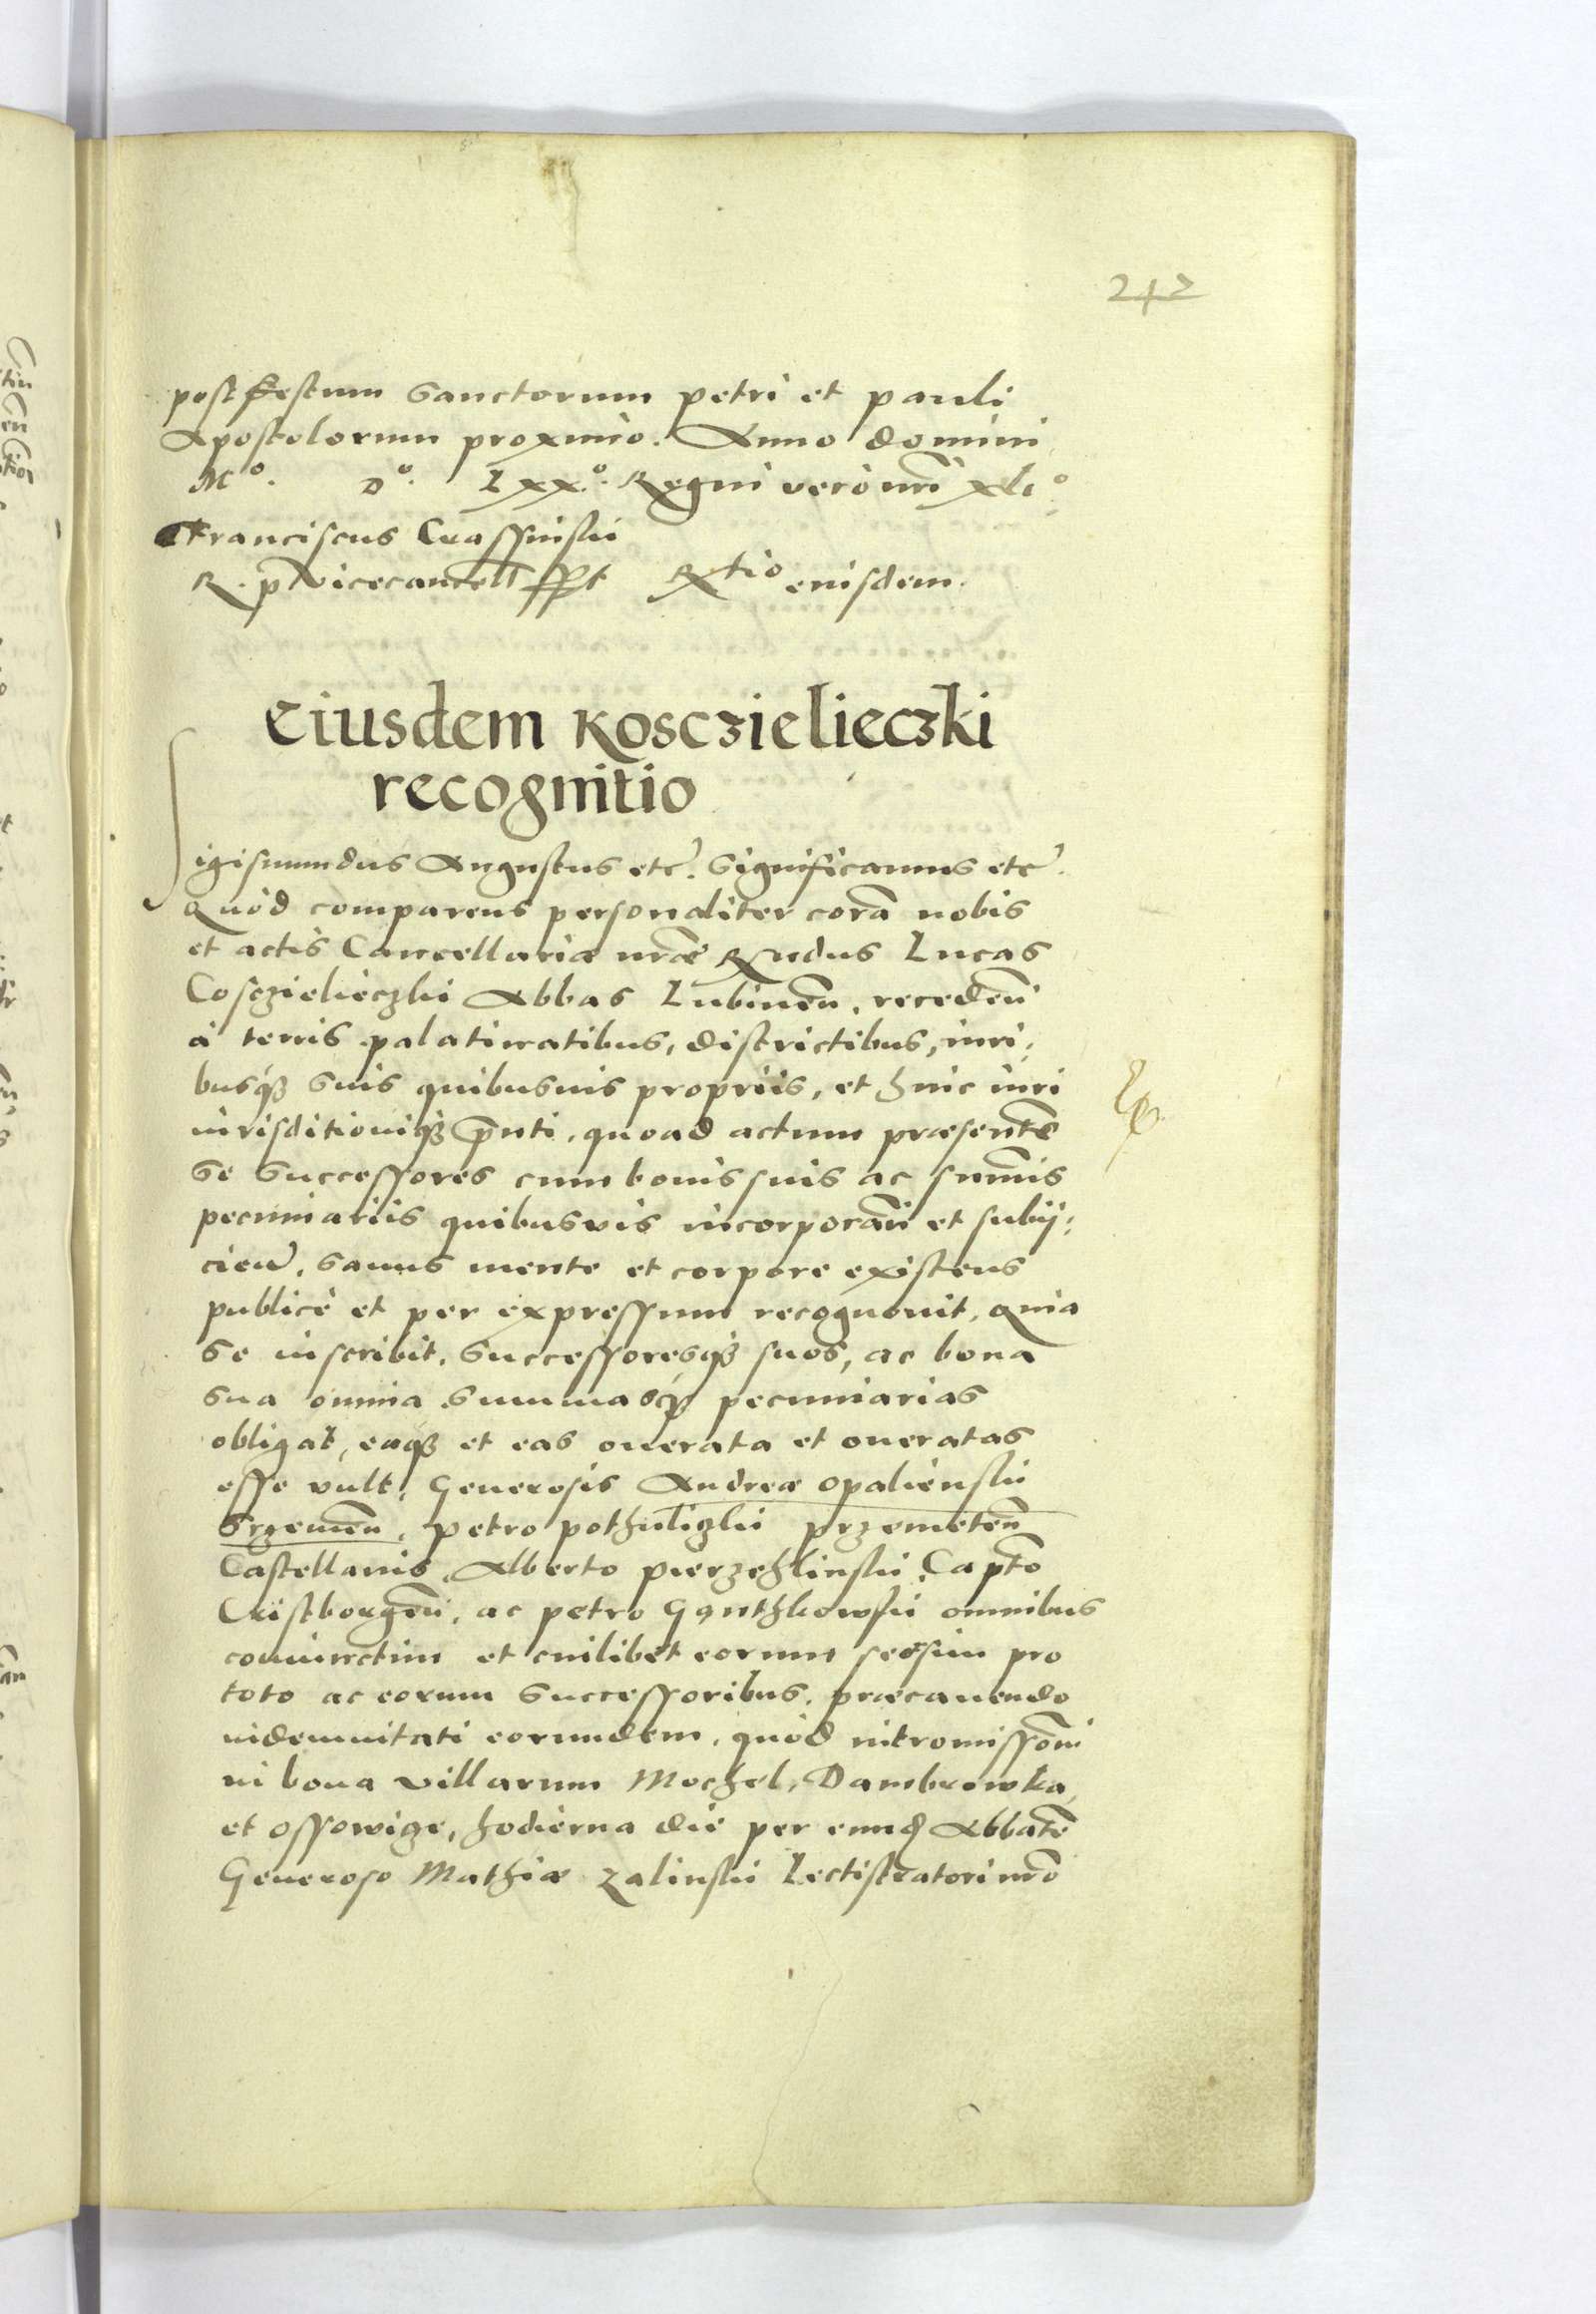 242
post festum Sanctorum Petri et Pauli
Apostolorum proximo. Anno domini
Mº. Dº. Lxxº. Regni vero nri xliº
Franciscus Crassinski
R. p. Vicecancell sspt Rtio eiusdem.
Eiusdem Kosczielieczki
recognitio
Sigismundus Augustus etc. Significamus etc.
Quod comparens personaliter corã nobis
et actis Cancellariæ nræ Rndus Lucas
Cosczielieczki Abbas Lubineñ, recedeñ
à terris palatinatibus, districtibus, iuri=
busq3 suis quibusuis propriis, et huic iuri
iurisditioniq3 pñti, quoad actum præsentẽ
se successores cum bonis suis ac summis
pecuniariis quibusvis incorporañ et subij=
cieñ, sanus mente et corpore existens
publicè et per expressum recognouit, quia
se inscribit, successoresq3 suos, ac bona
sua omnia summasq3 pecuniarias
obligat, eaq3 et eas onerata et oneratas
esse vult, Generosis Andreæ Opalienski
Srzemeñ, Petro Pothuliczki Przemeteñ
Castellanis, Alberto Pierzchlinski Capto
Cristborgeñ, ac Petro Ganthkowski omnibus
coniunctim et cuilibet eorum seorsim pro
toto ac eorum successoribus, præcauendo
indemnitati eorundem, quòd intromissõni
in bona villarum Mochel, Dambrowka,
et Ossowige, hodierna die per eund Abbatẽ
Generoso Mathiæ Zalinski Lectistratori nro